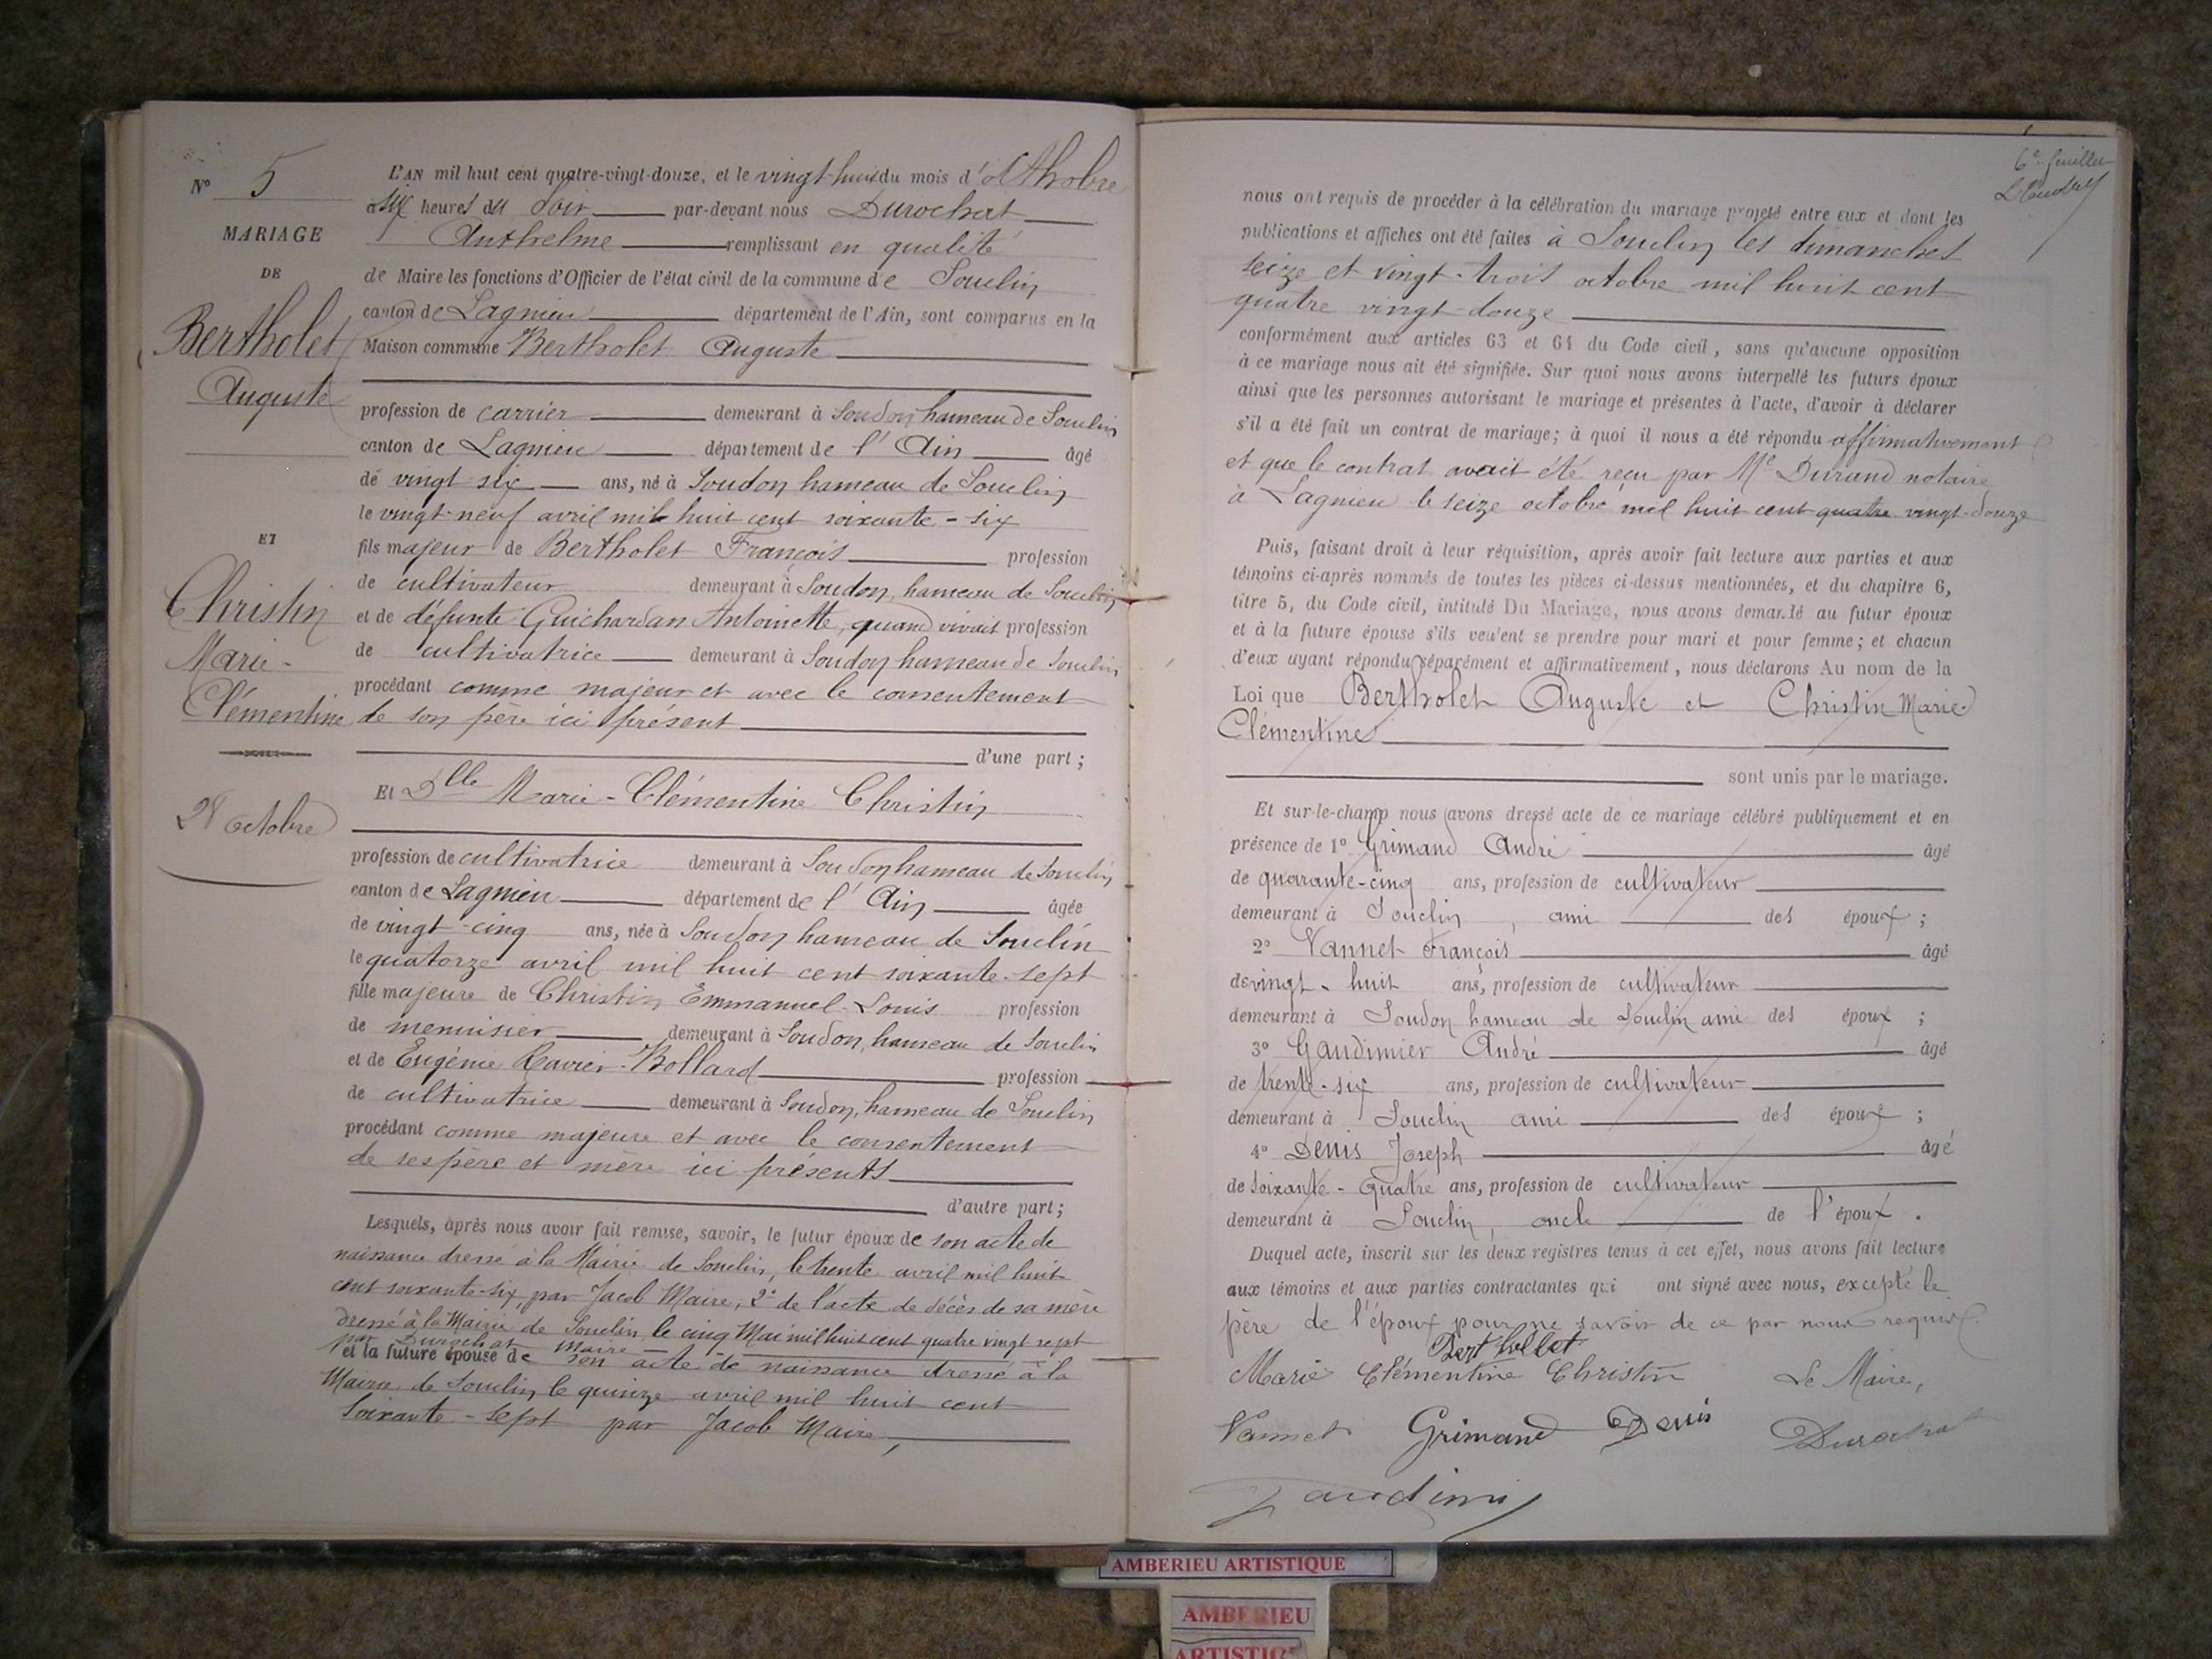 N° 5
MARIAGE
DE
Bertholet
Auguste
ET
Christin
Marie-
Clémentine
28 octobre
L'AN mil huit cent quatre-vingt-douze, et le vingt-huit du mois d'octhobre
à six heures du soir par-devant nous Durochat
Anthelme remplissant en qualité
de Maire les fonctions d'Officier de l'état civil de la commune de Souclin
canton de Lagnieu département de l'Ain, sont comparus en la
Maison commune Bertholet Auguste
profession de carrier demeurant à Soudon hameau de Souclin
canton de Lagnieu département de l'Ain âgé
de vingt six ans, né à Soudon hameau de Souclin
le vingt-neuf avril mil huit cent soixante-six
fils majeur de Bertholet François profession
de cultivateur demeurant à Soudon, hameau de Souclin
et de défunte Guichardan Antoinette, quand vivait profession
de cultivatrice demeurant à Soudon hameau de Souclin
procédant comme majeur et avec le consentement
de son père ici présent
d'une part ;
Et Dlle Marie-Clémentine Christin
profession de cultivatrice demeurant à Soudon hameau de Souclin
canton de Lagnieu département de l'Ain âgée
de vingt-cinq ans, née à Soudon hameau de Souclin
le quatorze avril mil huit cent soixante-sept
fille majeure de Christin Emmanuel-Louis profession
de menuisier demeurant à Soudon, hameau de Souclin
et de Eugénie Ravier-Bollard profession
de cultivatrice demeurant à Soudon, hameau de Souclin
procédant comme majeure et avec le consentement
de ses père et mère ici présents
d'autre part ;
Lesquels, après nous avoir fait remise, savoir, le futur époux de son acte de
naissance dressé à la Mairie de Souclin, le trente avril mil huit
cent soixante-six, par Jacob Maire, 2° de l'acte de décès de sa mère
dressé à la Mairie de Souclin le cinq Mai mil huit cent quatre vingt sept
par Durochat Maire
et la future épouse de son acte de naissance dressé à la
Mairie de Souclin, le quinze avril mil huit cent
soixante-sept par Jacob Maire,
6e feuillet
nous ont requis de procéder à la célébration du mariage projeté entre eux et dont les
publications et affiches ont été faites à Souclin les dimanches
seize et vingt-trois octobre mil huit cent
quatre vingt-douze
conformément aux articles 63 et 64 du Code civil, sans qu'aucune opposition
à ce mariage nous ait été signifiée. Sur quoi nous avons interpellé les futurs époux
ainsi que les personnes autorisant le mariage et présentes à l'acte, d'avoir à déclarer
s'il a été fait un contrat de mariage; à quoi il nous a été répondu affirmativement
et que le contrat avait été reçu par Me Durand notaire
à Lagnieu le seize octobre mil huit cent quatre vingt-douze
Puis, faisant droit à leur réquisition, après avoir fait lecture aux parties et aux
témoins ci-après nommés de toutes les pièces ci-dessus mentionnées, et du chapitre 6,
titre 5, du Code civil, intitulé Du Mariage, nous avons demandé au futur époux
et à la future épouse s'ils veulent se prendre pour mari et pour femme ; et chacun
d'eux ayant répondu séparément et affirmativement, nous déclarons Au nom de la
Loi que Bertholet Auguste et Christin Marie
Clémentine
sont unis par le mariage.
Et sur-le-champ nous avons dressé acte de ce mariage célébré publiquement et en
présence de 1° Grimand André âgé
de quarante-cinq ans, profession de cultivateur
demeurant à Souclin, ami des époux ;
2° Vannet François âgé
de vingt-huit ans, profession de cultivateur
demeurant à Soudon hameau de Souclin ami des époux ;
3° Gaudimier André âgé
de trente-six ans, profession de cultivateur
demeurant à Souclin ami des époux ;
4° Denis Joseph âgé
de soixante-quatre ans, profession de cultivateur
demeurant à Souclin, oncle de l'époux.
Duquel acte, inscrit sur les deux registres tenus à cet effet, nous avons fait lecture
aux témoins et aux parties contractantes qui ont signé avec nous, excepté le
père de l'époux pour ne savoir de ce par nous requis.
Berthollet
Marie Clémentine Christin Le Maire,
Vannet Grimand Denis Durochat
AMBERIEU ARTISTIQUE
AMBERIEU
ARTISTIQ